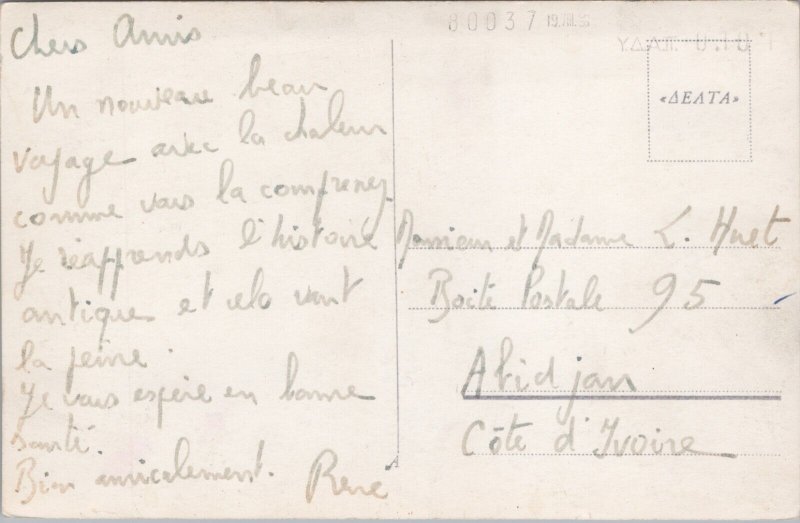 Chers Amis
Un nouveau beau
voyage avec la chaleur
comme vous la comprenez
Je réapprends l'histoire
antique et cela vaut
la peine.
Je vous espère en bonne
santé.
Bien amicalement. René
80037 19.VIII.
«ΔΕΛΤΑ»
Monsieur et Madame L. Huet
Boîte Postale 95
Abidjan
Côte d'Ivoire